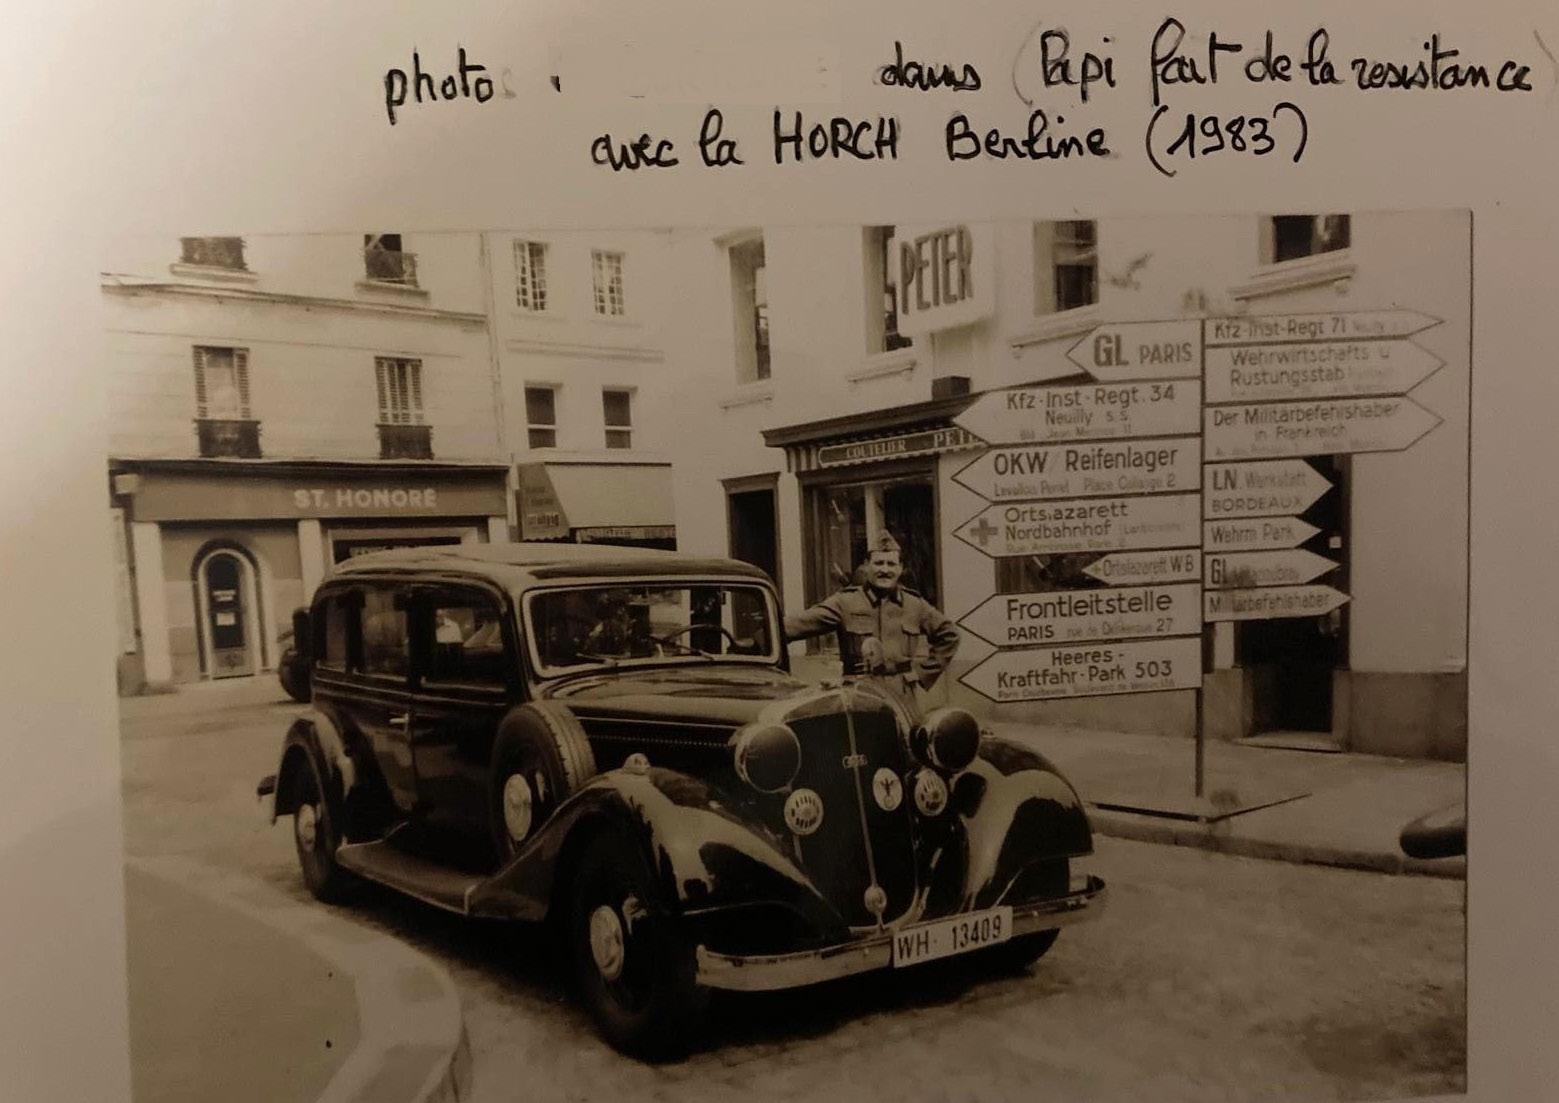 photo dans (Papi fait de la resistance)
avec la HORCH Berline (1983)
PETER
ST. HONORÉ
COUTELIER PET
GL PARIS
Kfz-Inst-Regt. 34
Neuilly s.s.
OKW Reifenlager
Place 2
Ortslazarett
Nordbahnhof
Ortslazarett W B
Frontleitstelle
PARIS rue de 27
Heeres-
Kraftfahr-Park 503
Kfz-Inst-Regt 71
Wehrwirtschafts u
Rüstungsstab
Der Militärbefehlshaber
in Frankreich
LN. Werkstatt
BORDEAUX
Wehrm Park
GL
Militärbefehlshaber
WH- 13409